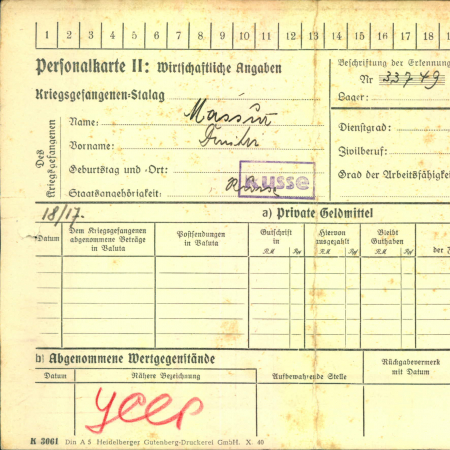 1 2 3 4 5 6 7 8 9 10 11 12 13 14 15 16 17 18 1
Personalkarte II: Wirtschaftliche Angaben
Beschriftung der Erkennung
Nr 33749
Kriegsgefangenen-Stalag
Lager:
Des Kriegsgefangenen
Name:
Dienstgrad:
Vorname:
Zivilberuf:
Geburtstag und -Ort:
Grad der Arbeitsfähigkei
Staatsangehörigkeit:
Russe
18/17.
a) Private Geldmittel
Datum
Dem Kriegsgefangenen abgenommene Beträge in Valuta
Postsendungen in Valuta
Gutschrift in
RM Rpf
Hiervon ausgezahlt
RM Rpf
Bleibt Guthaben
RM Rpf
der
b) Abgenommene Wertgegenstände
Datum
Nähere Bezeichnung
Aufbewahrende Stelle
Rückgabevermerk mit Datum
умер
K 3061 Din A 5 Heidelberger Gutenberg-Druckerei GmbH. X. 40